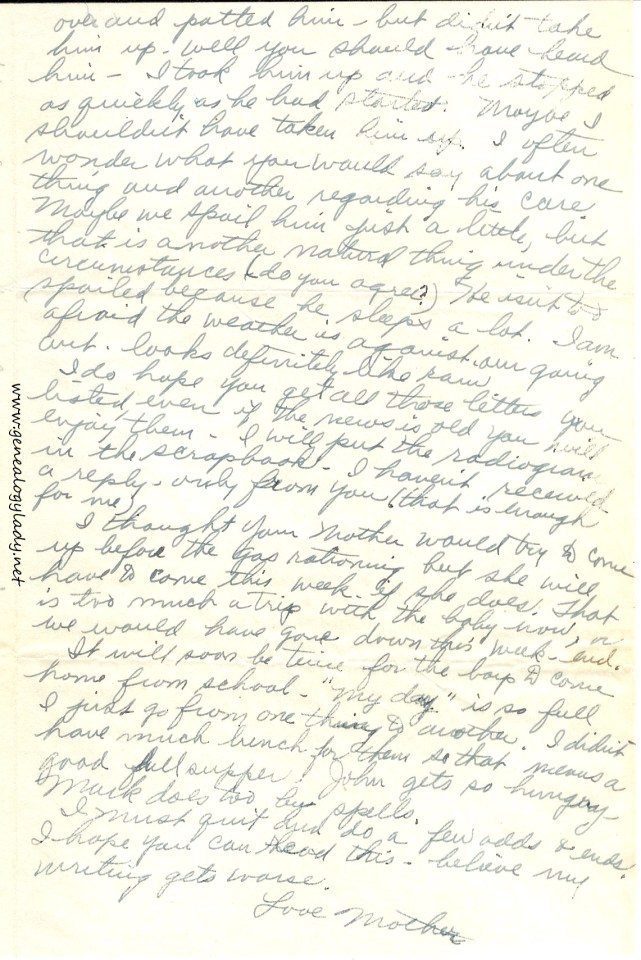 over and patted him - but didn't take
him up - well you should have heard
him - I took him up and he stopped
as quickly as he had started. Maybe I
shouldn't have taken him up. I often
wonder what you would say about one
thing and another regarding his care
Maybe we spoil him just a little, but
that is another natural thing under the
circumstances (do you agree?) He isn't too
spoiled because he sleeps a lot. I am
afraid the weather is against our going
out. looks definitely like rain
I do hope you get all those letters you
listed even if the news is old you will
enjoy them - I will put the radiogram
in the scrapbook - I haven't received
a reply - only from you (that is enough
for me)
I thought your Mother would try to come
up before the gas rationing but she will
have to come this week if she does. That
is too much a trip with the baby now, or
we would have gone down this week-end.
It will soon be time for the boys to come
home from school - "My day" is so full
I just go from one thing to another. I didn't
have much lunch for them so that means a
good full supper! John gets so hungry -
Mark does too by spells.
I must quit and do a few odds & ends.
I hope you can read this - believe my
writing gets worse.
Love Mother
www.genealogylady.net